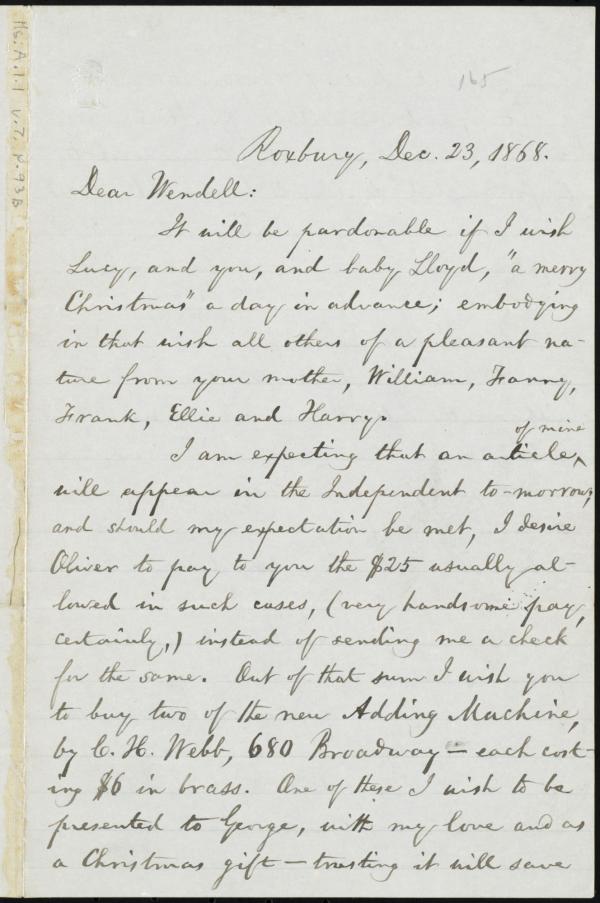 165
Ms.A.1.1 v.7, p.93B
Roxbury, Dec. 23, 1868.
Dear Wendell:
It will be pardonable if I wish
Lucy, and you, and baby Lloyd, "a merry
Christmas" a day in advance; embodying
in that wish all others of a pleasant na-
ture from your mother, William, Fanny,
Frank, Ellie and Harry.
of mine
I am expecting that an article,^
will appear in the Independent to-morrow;
and should my expectation be met, I desire
Oliver to pay to you the $25 usually al-
lowed in such cases, (very handsome pay,
certainly,) instead of sending me a check
for the same. Out of that sum I wish you
to buy two of the new Adding Machine,
by C. H. Webb, 680 Broadway — each cost-
ing $6 in brass. One of these I wish to be
presented to George, with my love and as
a Christmas gift — trusting it will save